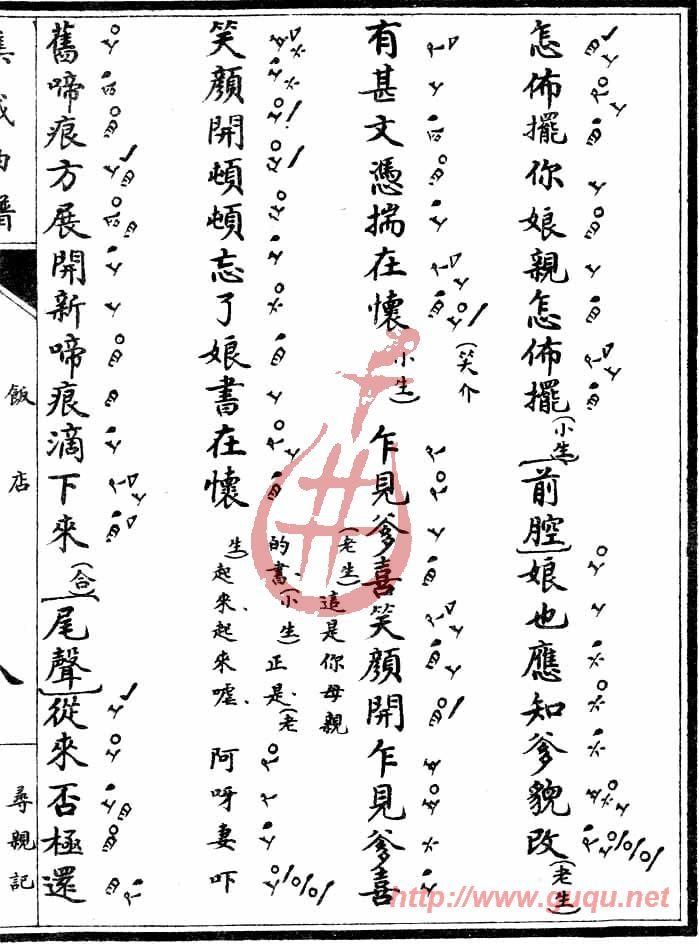 怎佈擺你娘親怎佈擺(小生)【前腔】娘也應知爹貌改(老生)
有甚文憑揣在懷(笑介 小生)乍見爹喜笑顏開乍見爹喜
笑顏開頓頓忘了娘書在懷(老生)這是你母親的書、(小生)正是、(老生)起來、起來噓、阿呀妻吓
舊啼痕方展開新啼痕滴下來(合)【尾聲】從來否極還
集成曲譜
飯店
尋親記
http://www.guqu.net